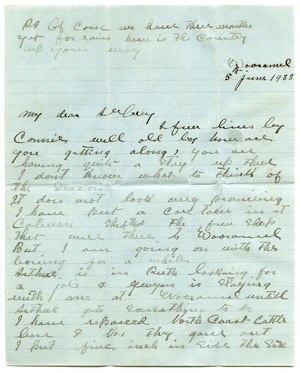 PS Of Course we have three months
yet for rain how is the Country
up your way
Wooramel
5th June 1935
My dear
a few lines by
Connie well old boy how are
you getting along, you are
having quite a stay up there
I don't know what to think of
the Season
It does not look very promising
I have But a Care taker in at
the few Sheep
that were there
But I am going on with the
boring for a while
Arthur is in Perth looking for
a job & Gwynn is staying
with me at Wooramel until
Arthur gets something to do
I have North Coast Cattle
line &
I But five inch in Side the Six